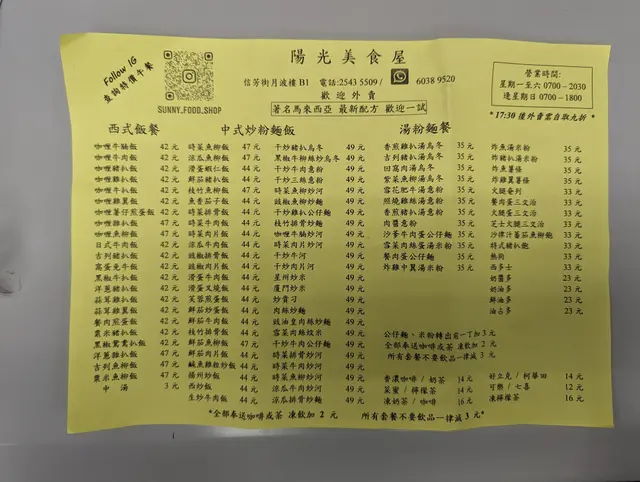 Follow IG
查詢特價午餐
SUNNY.FOOD.SHOP
陽光美食屋
信芳街月波樓B1 電話:2543 5509 / 6038 9520
歡迎外賣
著名馬來西亞 最新配方 歡迎一試
營業時間:
星期一至六 0700－2030
逢星期日 0700－1800
*17:30 後外賣雲自取九折 *
西式飯餐
咖喱牛腩飯 42 元
咖喱牛肉飯 42 元
咖喱豬扒飯 42 元
咖喱雞扒飯 42 元
咖喱牛扒飯 42 元
咖喱雞翼飯 42 元
咖喱薯仔煎蛋飯 42 元
咖喱雞扒飯 47 元
咖喱魚柳飯 42 元
日式牛肉飯 42 元
吉列豬扒飯 42 元
窩蛋免牛飯 42 元
黑椒牛扒飯 42 元
洋蔥豬扒飯 42 元
蒜茸雞扒飯 42 元
蒜茸雞翼飯 42 元
餐肉煎蛋飯 42 元
粟米豬扒飯 42 元
黑椒鴛鴦扒飯 42 元
洋蔥雞扒飯 47 元
吉列魚柳飯 42 元
粟米魚柳飯 42 元
中 湯 3 元
中式炒粉麵飯
時菜魚柳飯 47 元
涼瓜魚柳飯 47 元
滑蛋蝦仁飯 44 元
鮮茄豬扒飯 44 元
枝竹魚柳飯 47 元
魚香茄子飯 44 元
時菜排骨飯 44 元
時菜肉片飯 44 元
時菜牛肉飯 44 元
涼瓜牛肉飯 44 元
豉椒排骨飯 44 元
豉椒肉片飯 44 元
滑蛋牛肉飯 44 元
滑蛋叉燒飯 44 元
芙蓉煎蛋飯 44 元
鮮茄炒蛋飯 44 元
鮮茄牛肉飯 44 元
枝竹排骨飯 44 元
鮮茄魚柳飯 47 元
鮮茄肉片飯 44 元
鹹魚雞粒炒飯 44 元
揚州炒飯 44 元
西炒飯 44 元
生炒牛肉飯 44 元
干炒豬扒烏冬 49 元
黑椒牛柳絲炒烏冬 49 元
干炒牛肉意粉 49 元
干炒三絲意粉 49 元
時菜魚柳炒河 49 元
豉椒魚柳炒麵 49 元
干炒雞扒公仔麵 49 元
枝竹排骨炒麵 49 元
咖喱牛腩炒河 49 元
時菜肉片炒河 49 元
干炒牛河 49 元
干炒肉片河 49 元
星州炒米 49 元
廈門炒米 49 元
炒貴刁 49 元
肉絲炒麵 49 元
豉油皇肉絲炒麵 49 元
雪菜肉絲炆米 49 元
干炒牛肉公仔麵 49 元
時菜排骨炒河 49 元
時菜魚柳炒河 49 元
時菜牛肉炒河 49 元
涼瓜排骨炒河 49 元
涼瓜排骨炒麵 49 元
湯粉麵餐
香煎雞扒湯烏冬 35 元
吉列豬扒湯烏冬 35 元
回窩肉湯烏冬 35 元
紫菜魚柳湯烏冬 35 元
雪花肥牛湯意粉 35 元
照燒雞絲湯意粉 35 元
香煎豬扒湯意粉 35 元
肉醬意粉 35 元
沙爹牛肉蛋公仔麵 35 元
雪菜肉絲蛋湯米粉 35 元
餐肉蛋公仔麵 35 元
炸雞中翼湯米粉 35 元
公仔麵、米粉轉出前一丁加 3 元
全部奉送咖啡或茶 凍飲加 2 元
所有套餐不要飲品一律減 3 元
香濃咖啡 / 奶茶 14 元
菜蜜 / 檸檬茶 14 元
凍奶茶 / 咖啡 16 元
炸魚湯米粉 35 元
炸豬扒湯米粉 35 元
炸魚薯條 35 元
炸雞翼薯條 35 元
火腿奄列 33 元
餐肉蛋三文治 33 元
火腿蛋三文治 33 元
芝士火腿三文治 33 元
沙律汁蕃茄魚柳飽 33 元
特式豬扒飽 33 元
熱狗 33 元
西多士 33 元
奶醬多 23 元
奶油多 23 元
鮮油多 23 元
油占多 23 元
好立克 / 阿華田 14 元
可樂 / 七喜 12 元
凍檸檬茶 16 元
*全部奉送咖啡或茶 凍飲加 2 元 所有套餐不要飲品一律減 3 元*